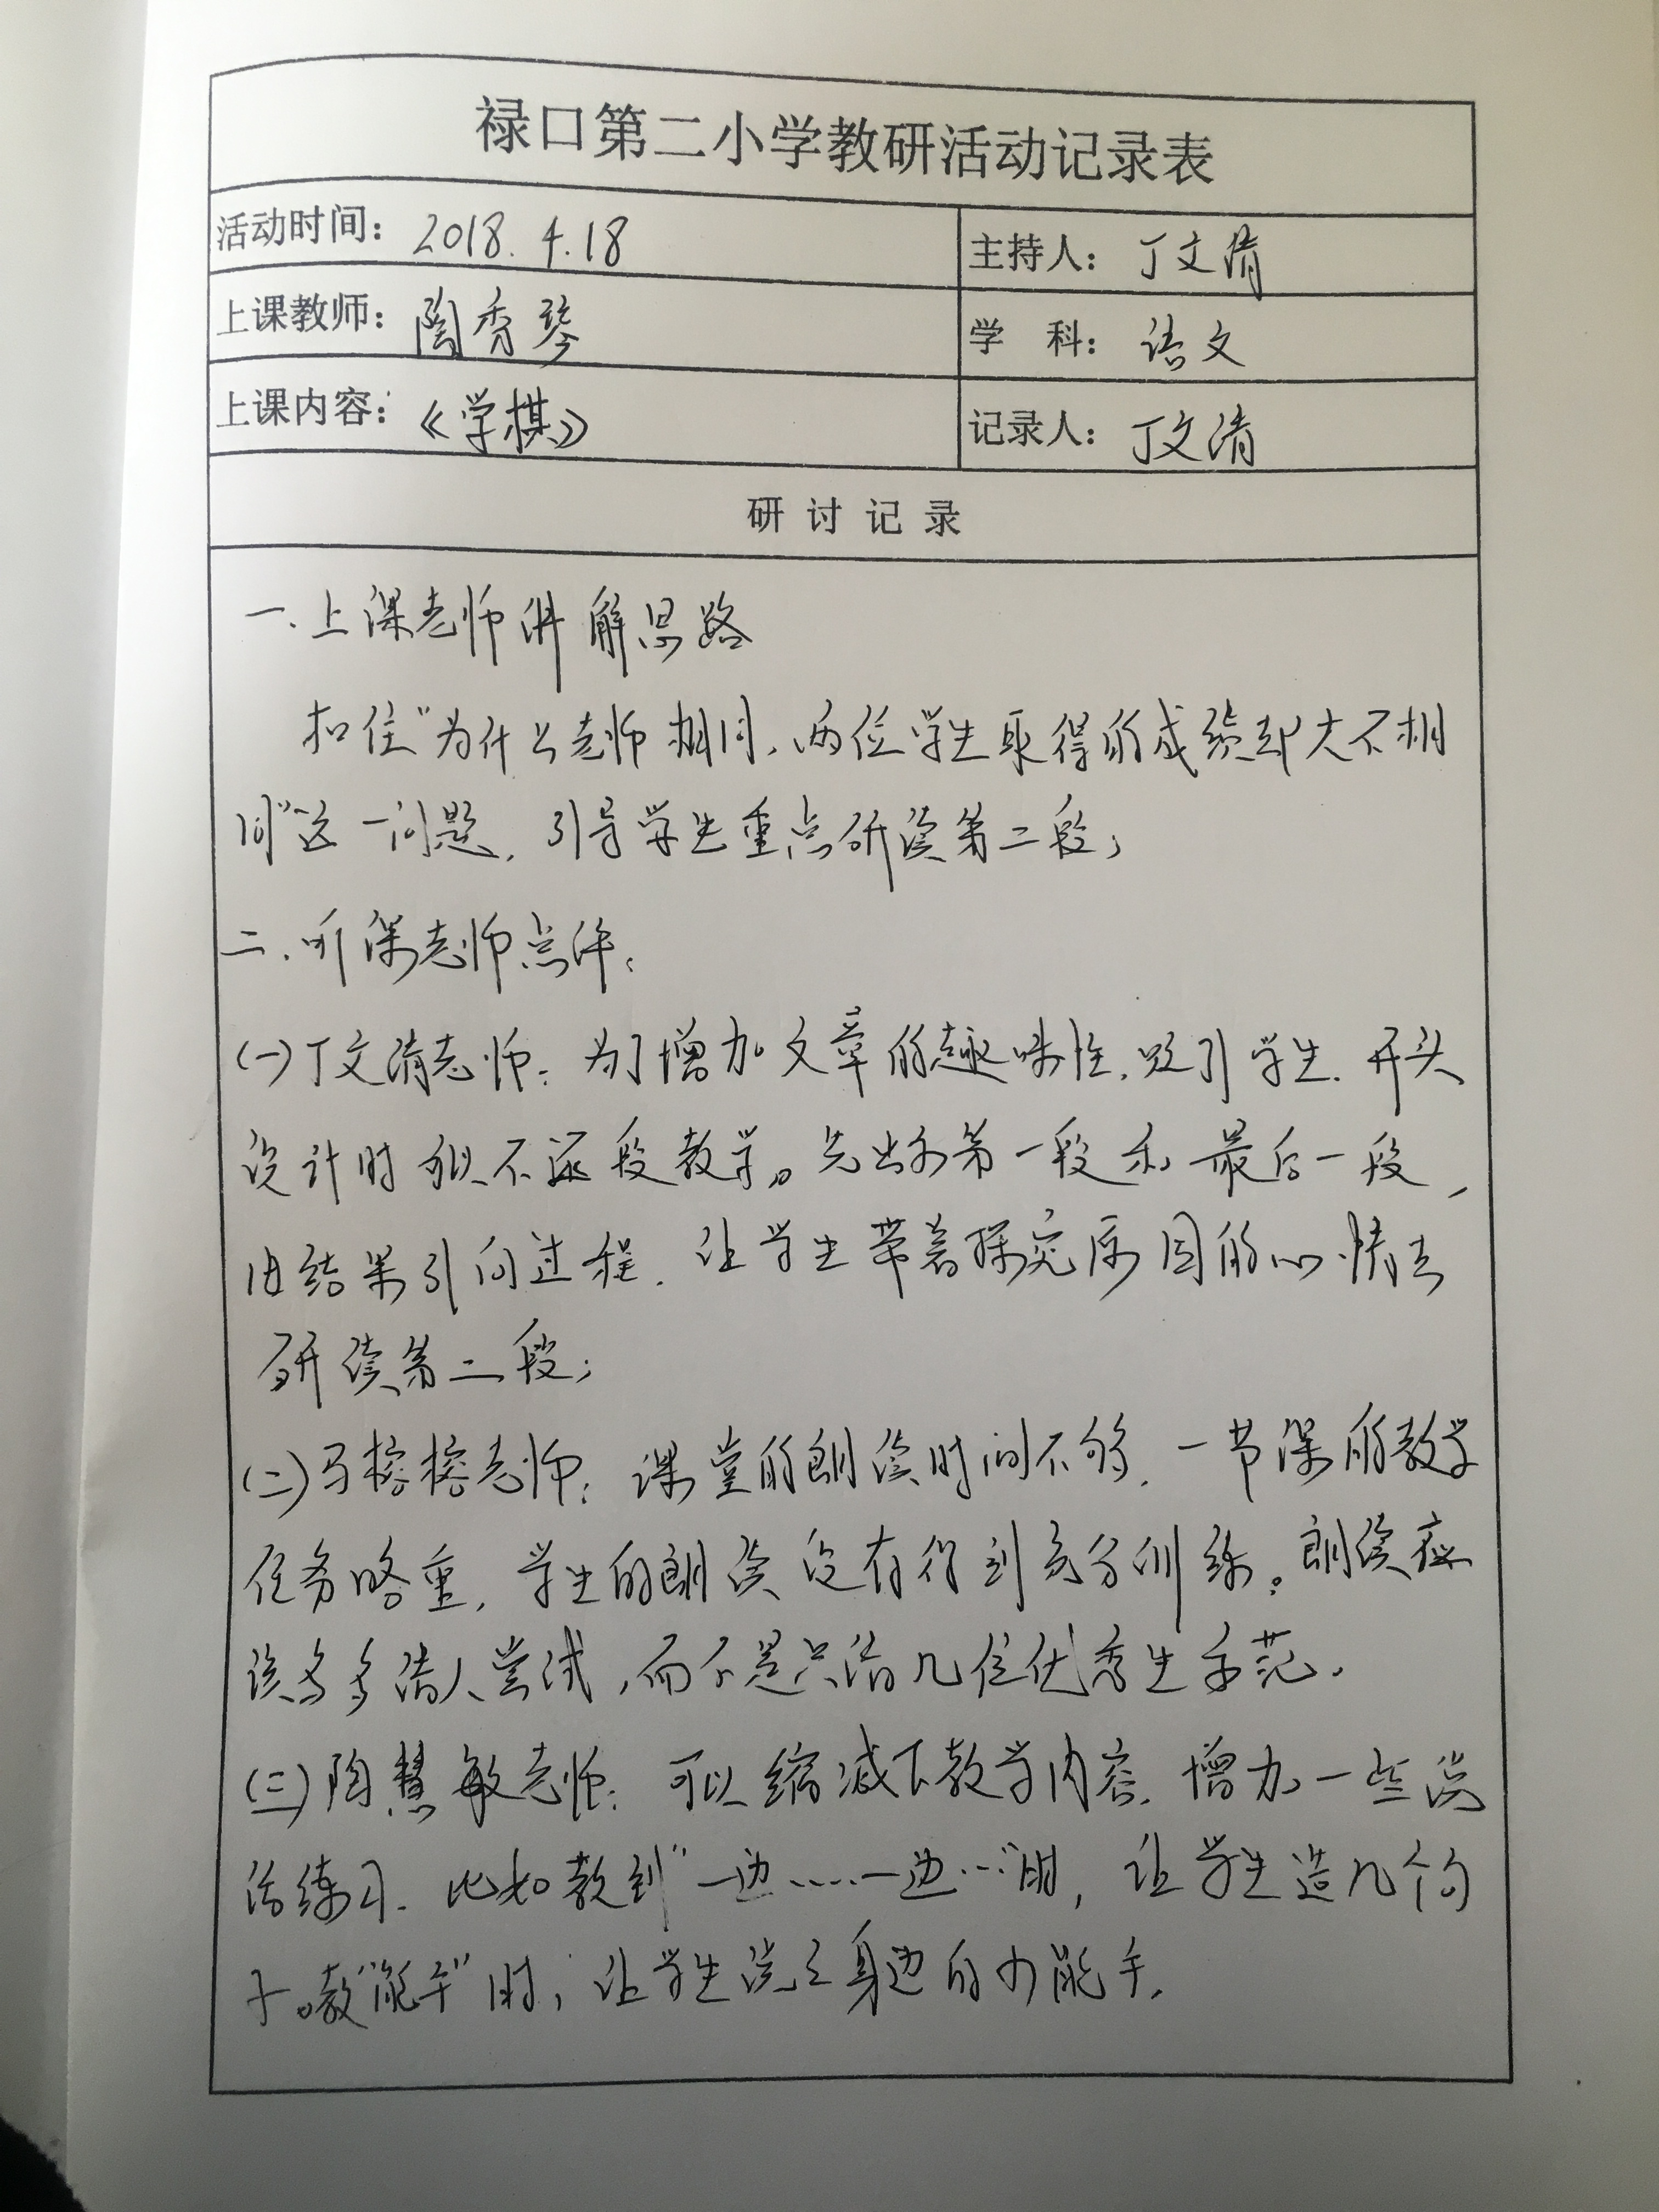 禄口第二小学教研活动记录表
活动时间：2018.4.18 主持人：丁文清
上课教师：陶秀琴 学 科：语文
上课内容：《学棋》 记录人：丁文清
研讨记录
一.上课老师讲解思路
扣住"为什么老师相同，两位学生取得的成绩却大不相
同"这一问题，引导学生重点研读第二段；
二.听课老师点评：
(一)丁文清老师：为了增加文章的趣味性，吸引学生，开头
设计时可以不逐段教学。先出示第一段和最后一段，
由结果引向过程，让学生带着探究原因的心情去
研读第二段；
(二)马榕榕老师：课堂的朗读时间不够，一节课的教学
任务略重，学生的朗读没有得到充分训练。朗读应
该多多请人尝试，而不是只请几位优秀生示范。
(三)陶慧敏老师：可以缩减下教学内容，增加一些说
话练习，比如教到"一边……一边…"时，让学生造几个句
子。教"能手"时，让学生说说身边的小能手。